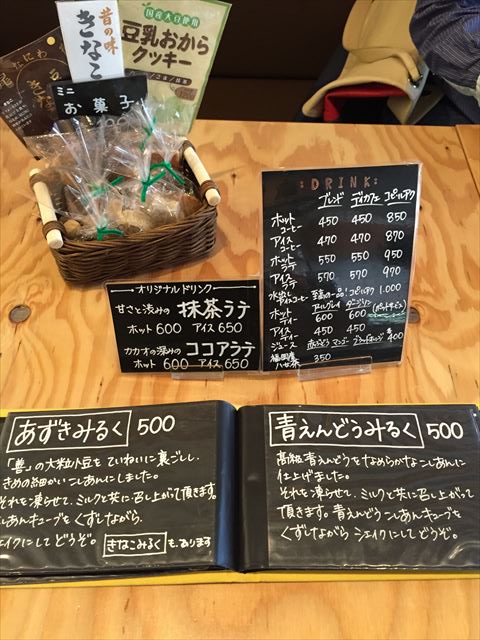 昔の味
きなこ
国産大豆使用
豆乳おから
クッキー
ミニ
お菓子
:DRINK:
ブレンド デカフェ コピルアク
ホットコーヒー 450 450 850
アイスコーヒー 470 470 870
ホットラテ 550 550 950
アイスラテ 570 570 970
水出しアイスコーヒー 至高の一品!コピルアク 1.000
ホットティー アールグレイ 600 ダージリン 600 (ポットサービス)
アイスティー 450 450
ジュース マンゴー ブラッドオレンジ 400
ハブ茶 350
オリジナルドリンク
甘さと渋みの 抹茶ラテ
ホット 600 アイス 650
カカオの深みの ココアラテ
ホット 600 アイス 650
あずきみるく 500
「善」の大粒小豆をていねいに裏ごしし、
きめの細かいこしあんにしました。
それを凍らせて、ミルクと共に召し上がって頂きます。
しあんキューブをくずしながら、
シェイクにしてどうぞ。 きなこみるく も、あります
青えんどうみるく 500
高級青えんどうをなめらかなこしあんに
仕上げました。
それを凍らせて、ミルクと共に召し上がって
頂きます。青えんどうこしあんキューブを
くずしながらシェイクにしてどうぞ。